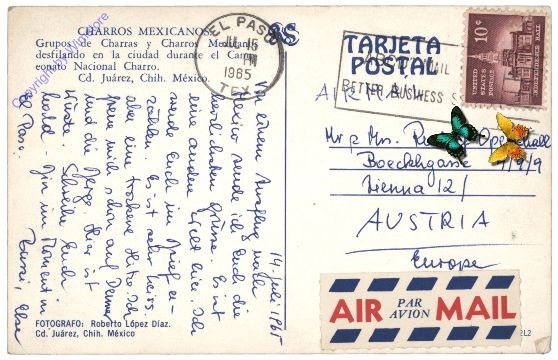 CHARROS MEXICANOS
Grupos de Charras y Charros Mexicanos
desfilando en la ciudad durante el Campe-
onato Nacional de Charro.
Cd. Juárez, Chih. México.
EL PASO
JUL 15
PM
1985
TEX
TARJETA
POSTAL
MAIL
BETTER BUSINESS
10¢
UNITED STATES POSTAGE
INDEPENDENCE HALL
AIR MAIL
Mr & Mrs.
Boeckhgasse 7/9/9
Vienna 12/
AUSTRIA
Europe
14. Juli 1965
Von einem Ausflug nach
Mexico sende ich Euch die
herzlichsten Grüsse. Es ist
eine andere Welt hier. Ich
werde Euch im Brief er-
zählen. Es ist sehr heiss,
aber eine trockene Hitze. Ich
freue mich schon auf Denver
und die Berge. Hier ist
Wüste. Schreibe Euch
bald - bin im Moment in
El Paso.
Bussi, Else
AIR PAR AVION MAIL
FOTOGRAFO: Roberto López Díaz.
Cd. Juárez, Chih. México
2L2